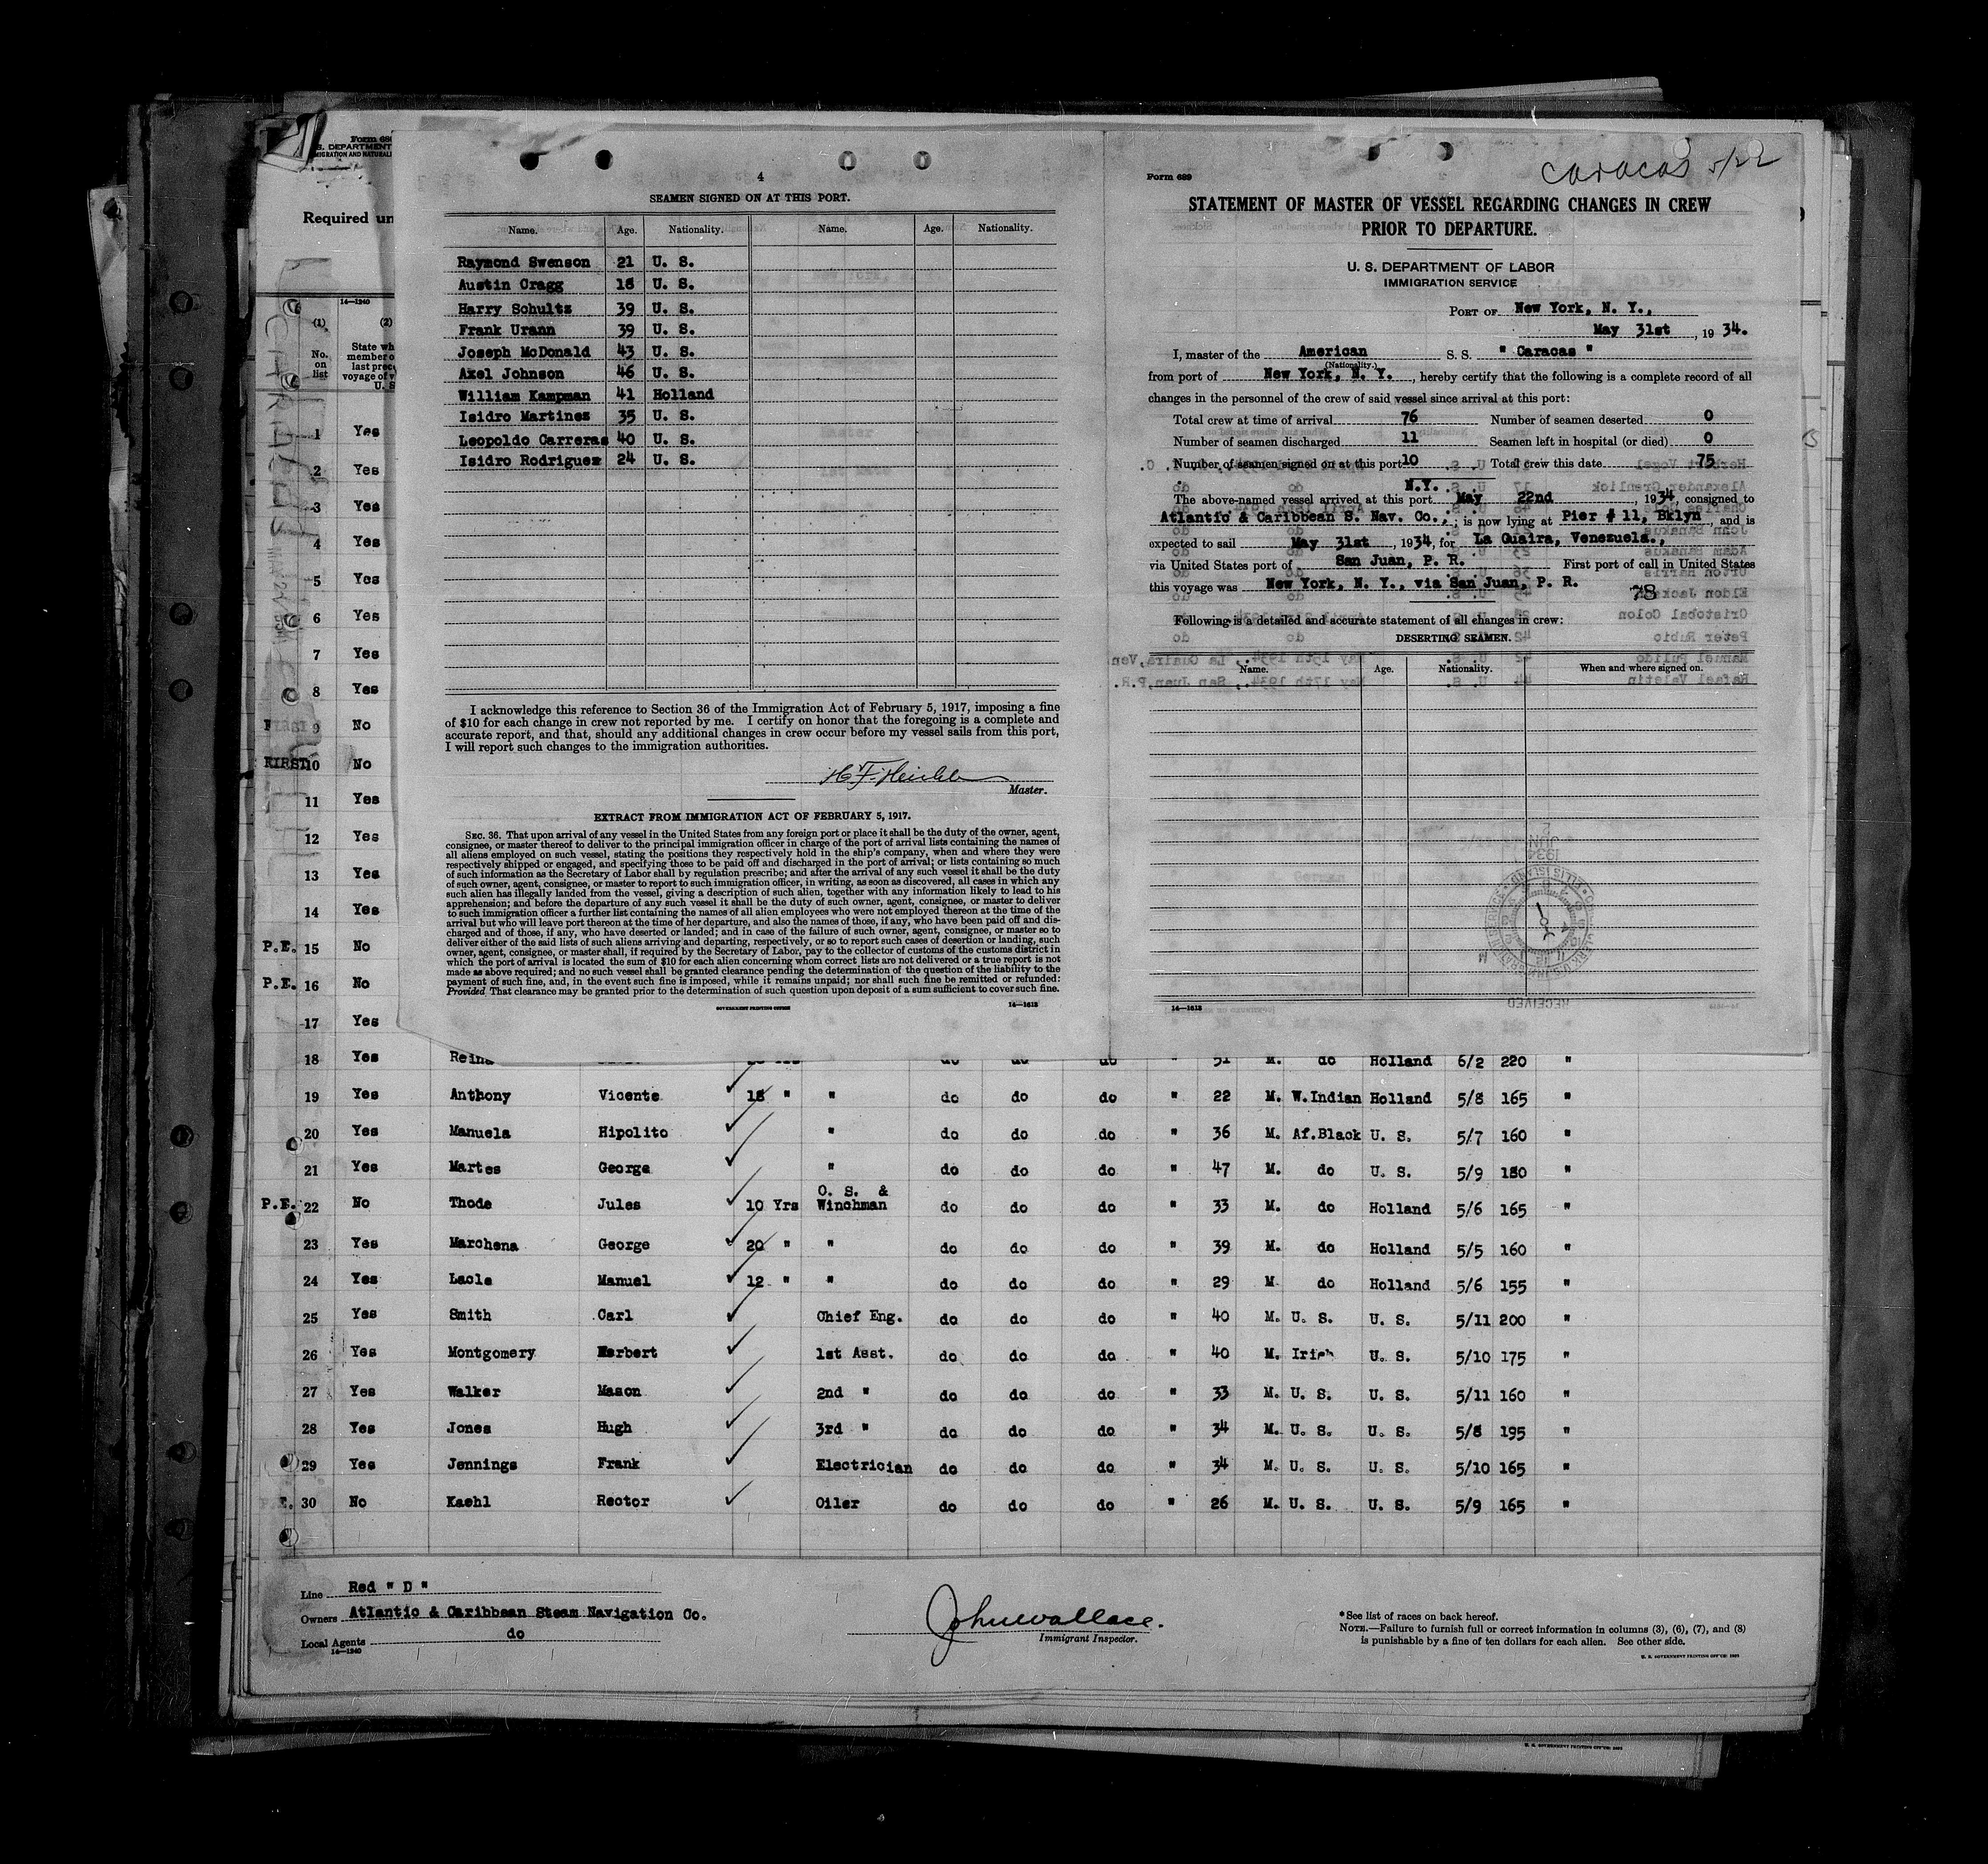 Form 68
S. DEPARTMENT
MIGRATION AND NATURALI
Required un
14—1240
(1)
(2)
No. on list
State wh
member o
last prec
voyage of v
U. S
1 Yes
2 Yes
3 Yes
4 Yes
5 Yes
6 Yes
7 Yes
8 Yes
FIRST 9 No
FIRST 10 No
11 Yes
12 Yes
13 Yes
14 Yes
P.E. 15 No
P.E. 16 No
17 Yes
4
SEAMEN SIGNED ON AT THIS PORT.
Name. Age. Nationality. Name. Age. Nationality.
Raymond Swenson 21 U. S.
Austin Cragg 18 U. S.
Harry Schultz 39 U. S.
Frank Urann 39 U. S.
Joseph McDonald 43 U. S.
Axel Johnson 46 U. S.
William Kampman 41 Holland
Isidro Martinez 35 U. S.
Leopoldo Carreras 40 U. S.
Isidro Rodriguez 24 U. S.
I acknowledge this reference to Section 36 of the Immigration Act of February 5, 1917, imposing a fine
of $10 for each change in crew not reported by me. I certify on honor that the foregoing is a complete and
accurate report, and that, should any additional changes in crew occur before my vessel sails from this port,
I will report such changes to the immigration authorities.
Master.
EXTRACT FROM IMMIGRATION ACT OF FEBRUARY 5, 1917.
SEC. 36. That upon arrival of any vessel in the United States from any foreign port or place it shall be the duty of the owner, agent,
consignee, or master thereof to deliver to the principal immigration officer in charge of the port of arrival lists containing the names of
all aliens employed on such vessel, stating the positions they respectively hold in the ship's company, when and where they were
respectively shipped or engaged, and specifying those to be paid off and discharged in the port of arrival; or lists containing so much
of such information as the Secretary of Labor shall by regulation prescribe; and after the arrival of any such vessel it shall be the duty
of such owner, agent, consignee, or master to report to such immigration officer, in writing, as soon as discovered, all cases in which any
such alien has illegally landed from the vessel, giving a description of such alien, together with any information likely to lead to his
apprehension; and before the departure of any such vessel it shall be the duty of such owner, agent, consignee, or master to deliver
to such immigration officer a further list containing the names of all alien employees who were not employed thereon at the time of the
arrival but who will leave port thereon at the time of her departure, and also the names of those, if any, who have been paid off and dis-
charged and of those, if any, who have deserted or landed; and in case of the failure of such owner, agent, consignee, or master so to
deliver either of the said lists of such aliens arriving and departing, respectively, or so to report such cases of desertion or landing, such
owner, agent, consignee, or master shall, if required by the Secretary of Labor, pay to the collector of customs of the customs district in
which the port of arrival is located the sum of $10 for each alien concerning whom correct lists are not delivered or a true report is not
made as above required; and no such vessel shall be granted clearance pending the determination of the question of the liability to the
payment of such fine, and, in the event such fine is imposed, while it remains unpaid; nor shall such fine be remitted or refunded:
Provided That clearance may be granted prior to the determination of such question upon deposit of a sum sufficient to cover such fine.
GOVERNMENT PRINTING OFFICE 14—1613
Caracas 5/22
Form 689
STATEMENT OF MASTER OF VESSEL REGARDING CHANGES IN CREW
PRIOR TO DEPARTURE.
U. S. DEPARTMENT OF LABOR
IMMIGRATION SERVICE
PORT OF New York, N. Y.,
May 31st, 1934.
I, master of the American S. S. " Caracas "
(Nationality.)
from port of New York, N. Y., hereby certify that the following is a complete record of all
changes in the personnel of the crew of said vessel since arrival at this port:
Total crew at time of arrival 76 Number of seamen deserted 0
Number of seamen discharged 11 Seamen left in hospital (or died) 0
Number of seamen signed on at this port 10 Total crew this date 75
N.Y.
The above-named vessel arrived, at this port May 22nd, 1934, consigned to
Atlantic & Caribbean S. Nav. Co.,; is now lying at Pier # 11, Bklyn, and is
expected to sail May 31st, 1934, for La Guaira, Venezuela.,
via United States port of San Juan, P. R. First port of call in United States
this voyage was New York, N. Y., via San Juan, P. R.
78
Following is a detailed and accurate statement of all changes in crew:
DESERTING SEAMEN.
Name. Age. Nationality. When and where signed on.
RECEIVED
14—1613
18 Yes Rein do do do " 51 M. do Holland 6/2 220 "
19 Yes Anthony Vicente 18 " " do do do " 22 M. W.Indian Holland 5/8 165 "
20 Yes Manuela Hipolito " do do do " 36 M. Af.Black U. S. 5/7 160 "
21 Yes Martes George " do do do " 47 M. do U. S. 5/9 180 "
P.E. 22 No Thode Jules 10 Yrs O. S. & Winchman do do do " 33 M. do Holland 5/6 165 "
23 Yes Marchena George 20 " " do do do " 39 M. do Holland 5/5 160 "
24 Yes Lacle Manuel 12 " " do do do " 29 M do Holland 5/6 155 "
25 Yes Smith Carl Chief Eng. do do do " 40 M. U. S. U. S. 5/11 200 "
26 Yes Montgomery Herbert 1st Asst. do do do " 40 M. Irish U. S. 5/10 175 "
27 Yes Walker Mason 2nd " do do do " 33 M. U. S. U. S. 5/11 160 "
28 Yes Jones Hugh 3rd " do do do " 34 M. U. S. U. S. 5/8 195 "
29 Yes Jennings Frank Electrician do do do " 34 M. U. S. U. S. 5/10 165 "
P.E. 30 No Kaehl Rector Oiler do do do " 26 M. U. S. U. S. 5/9 165 "
Line Red " D "
Owners Atlantic & Caribbean Steam Navigation Co.
Local Agents do
14—1240
John Wallace.
Immigrant Inspector.
*See list of races on back hereof.
NOTE.—Failure to furnish full or correct information in columns (3), (6), (7), and (8)
is punishable by a fine of ten dollars for each alien. See other side.